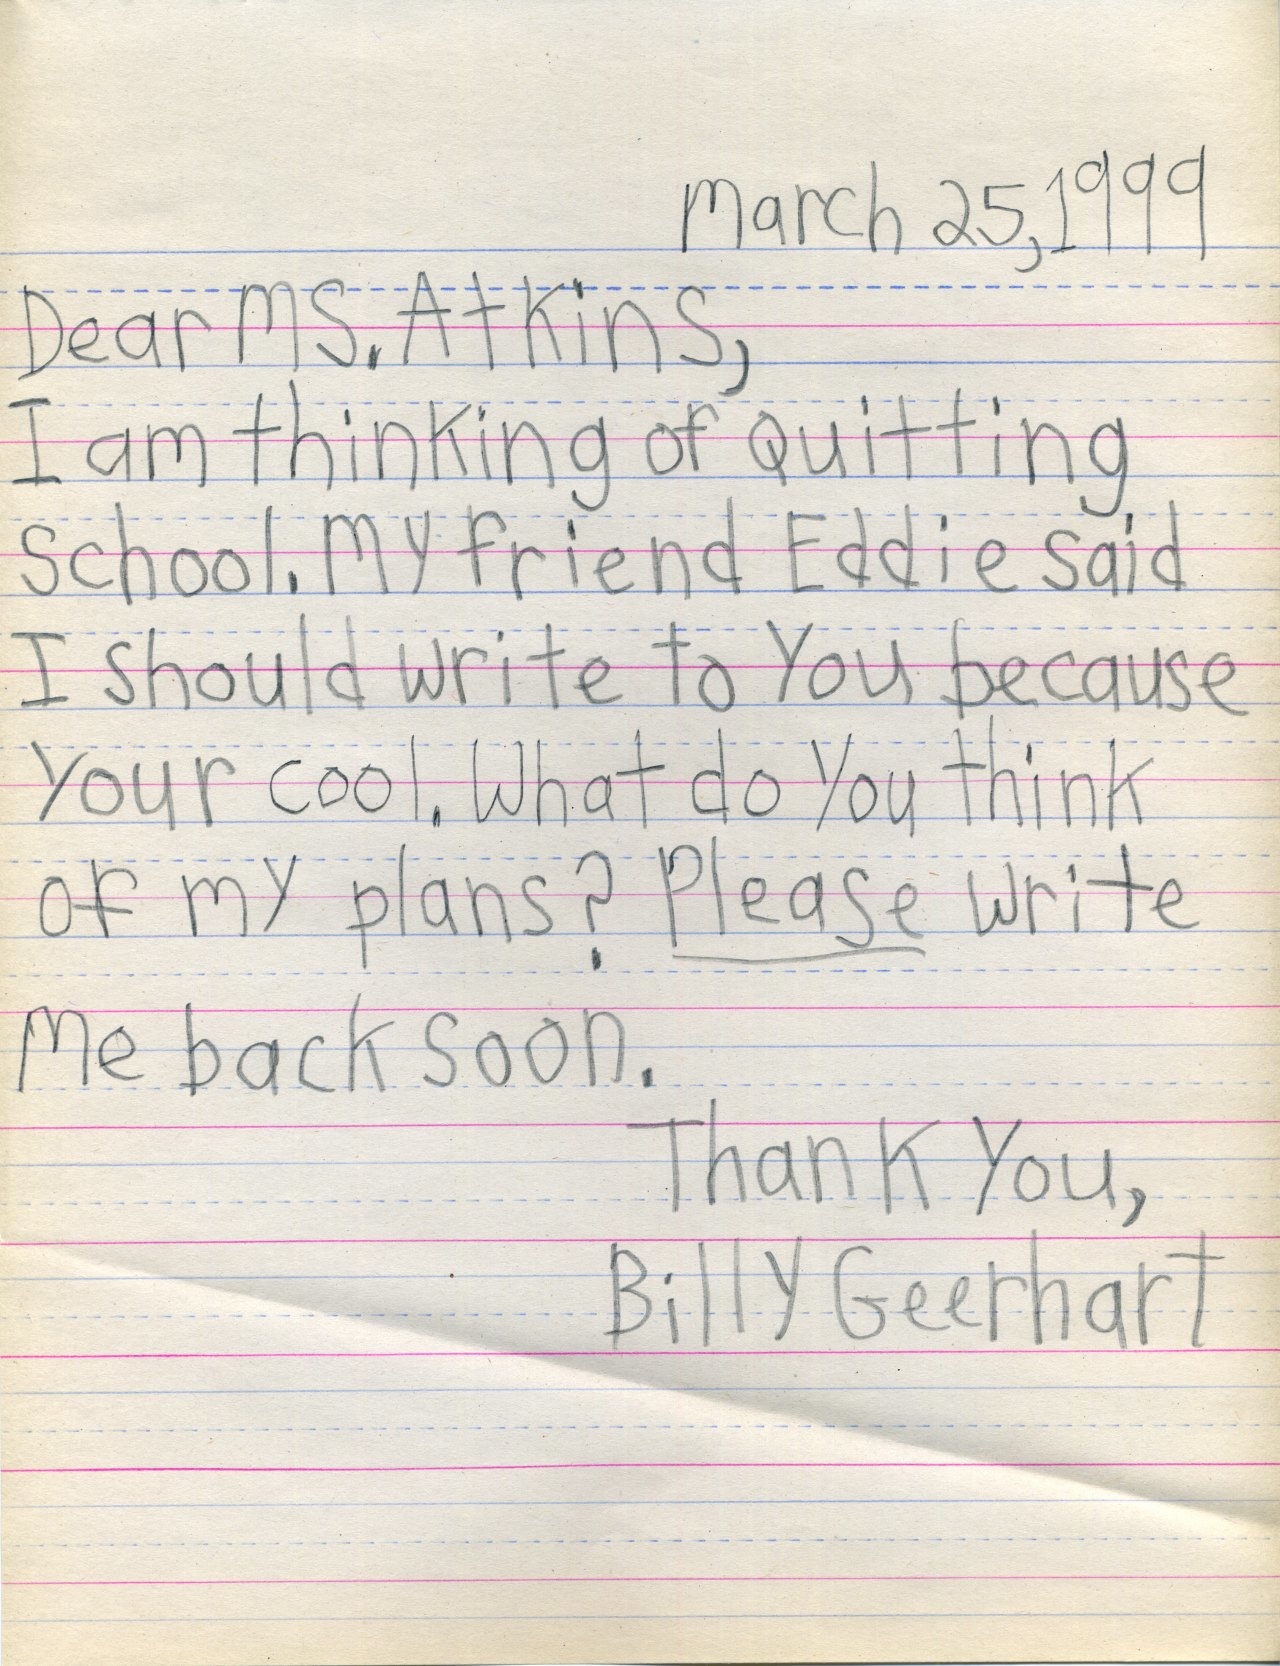 March 25, 1999
Dear Ms. Atkins,
I am thinking of Quitting
School. My friend Eddie said
I should write to You because
Your cool. What do You think
of my plans? Please write
Me back soon.
Thank You,
Billy Geerhart